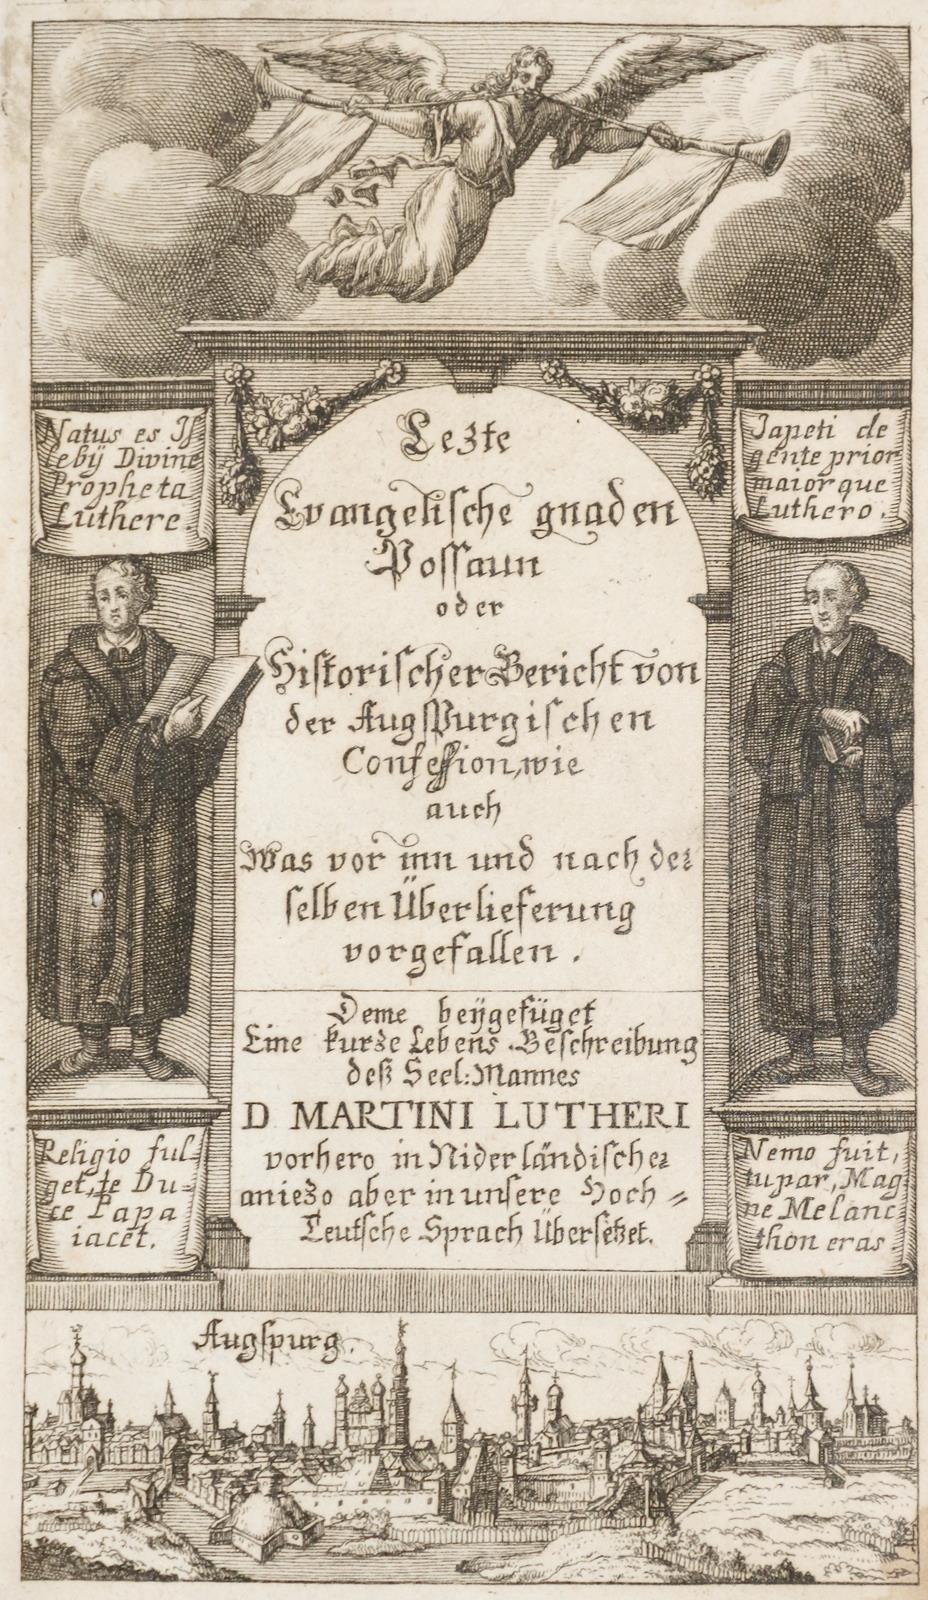 Natus es Is-
lebij Divine
Propheta
Luthere.
Japeti de
gente prior
maiorque
Luthero.
Lezte
Evangelische gnaden
Possaun
oder
Historischer Bericht von
der Augspurgischen
Confession, wie
auch
Was vor inn und nach der
selben Überlieferung
vorgefallen.
Deme beÿgefüget
Eine kurze Lebens-Beschreibung
deß Seel: Mannes
D MARTINI LUTHERI
vorhero in Niderländischer
aniezo aber in unsere Hoch=
Teutsche Sprach Übersetzet.
Religio ful-
get, te Du-
ce Papa
iacet.
Nemo fuit,
tu par, Mag
ne Melanc
thon eras
Augspurg.